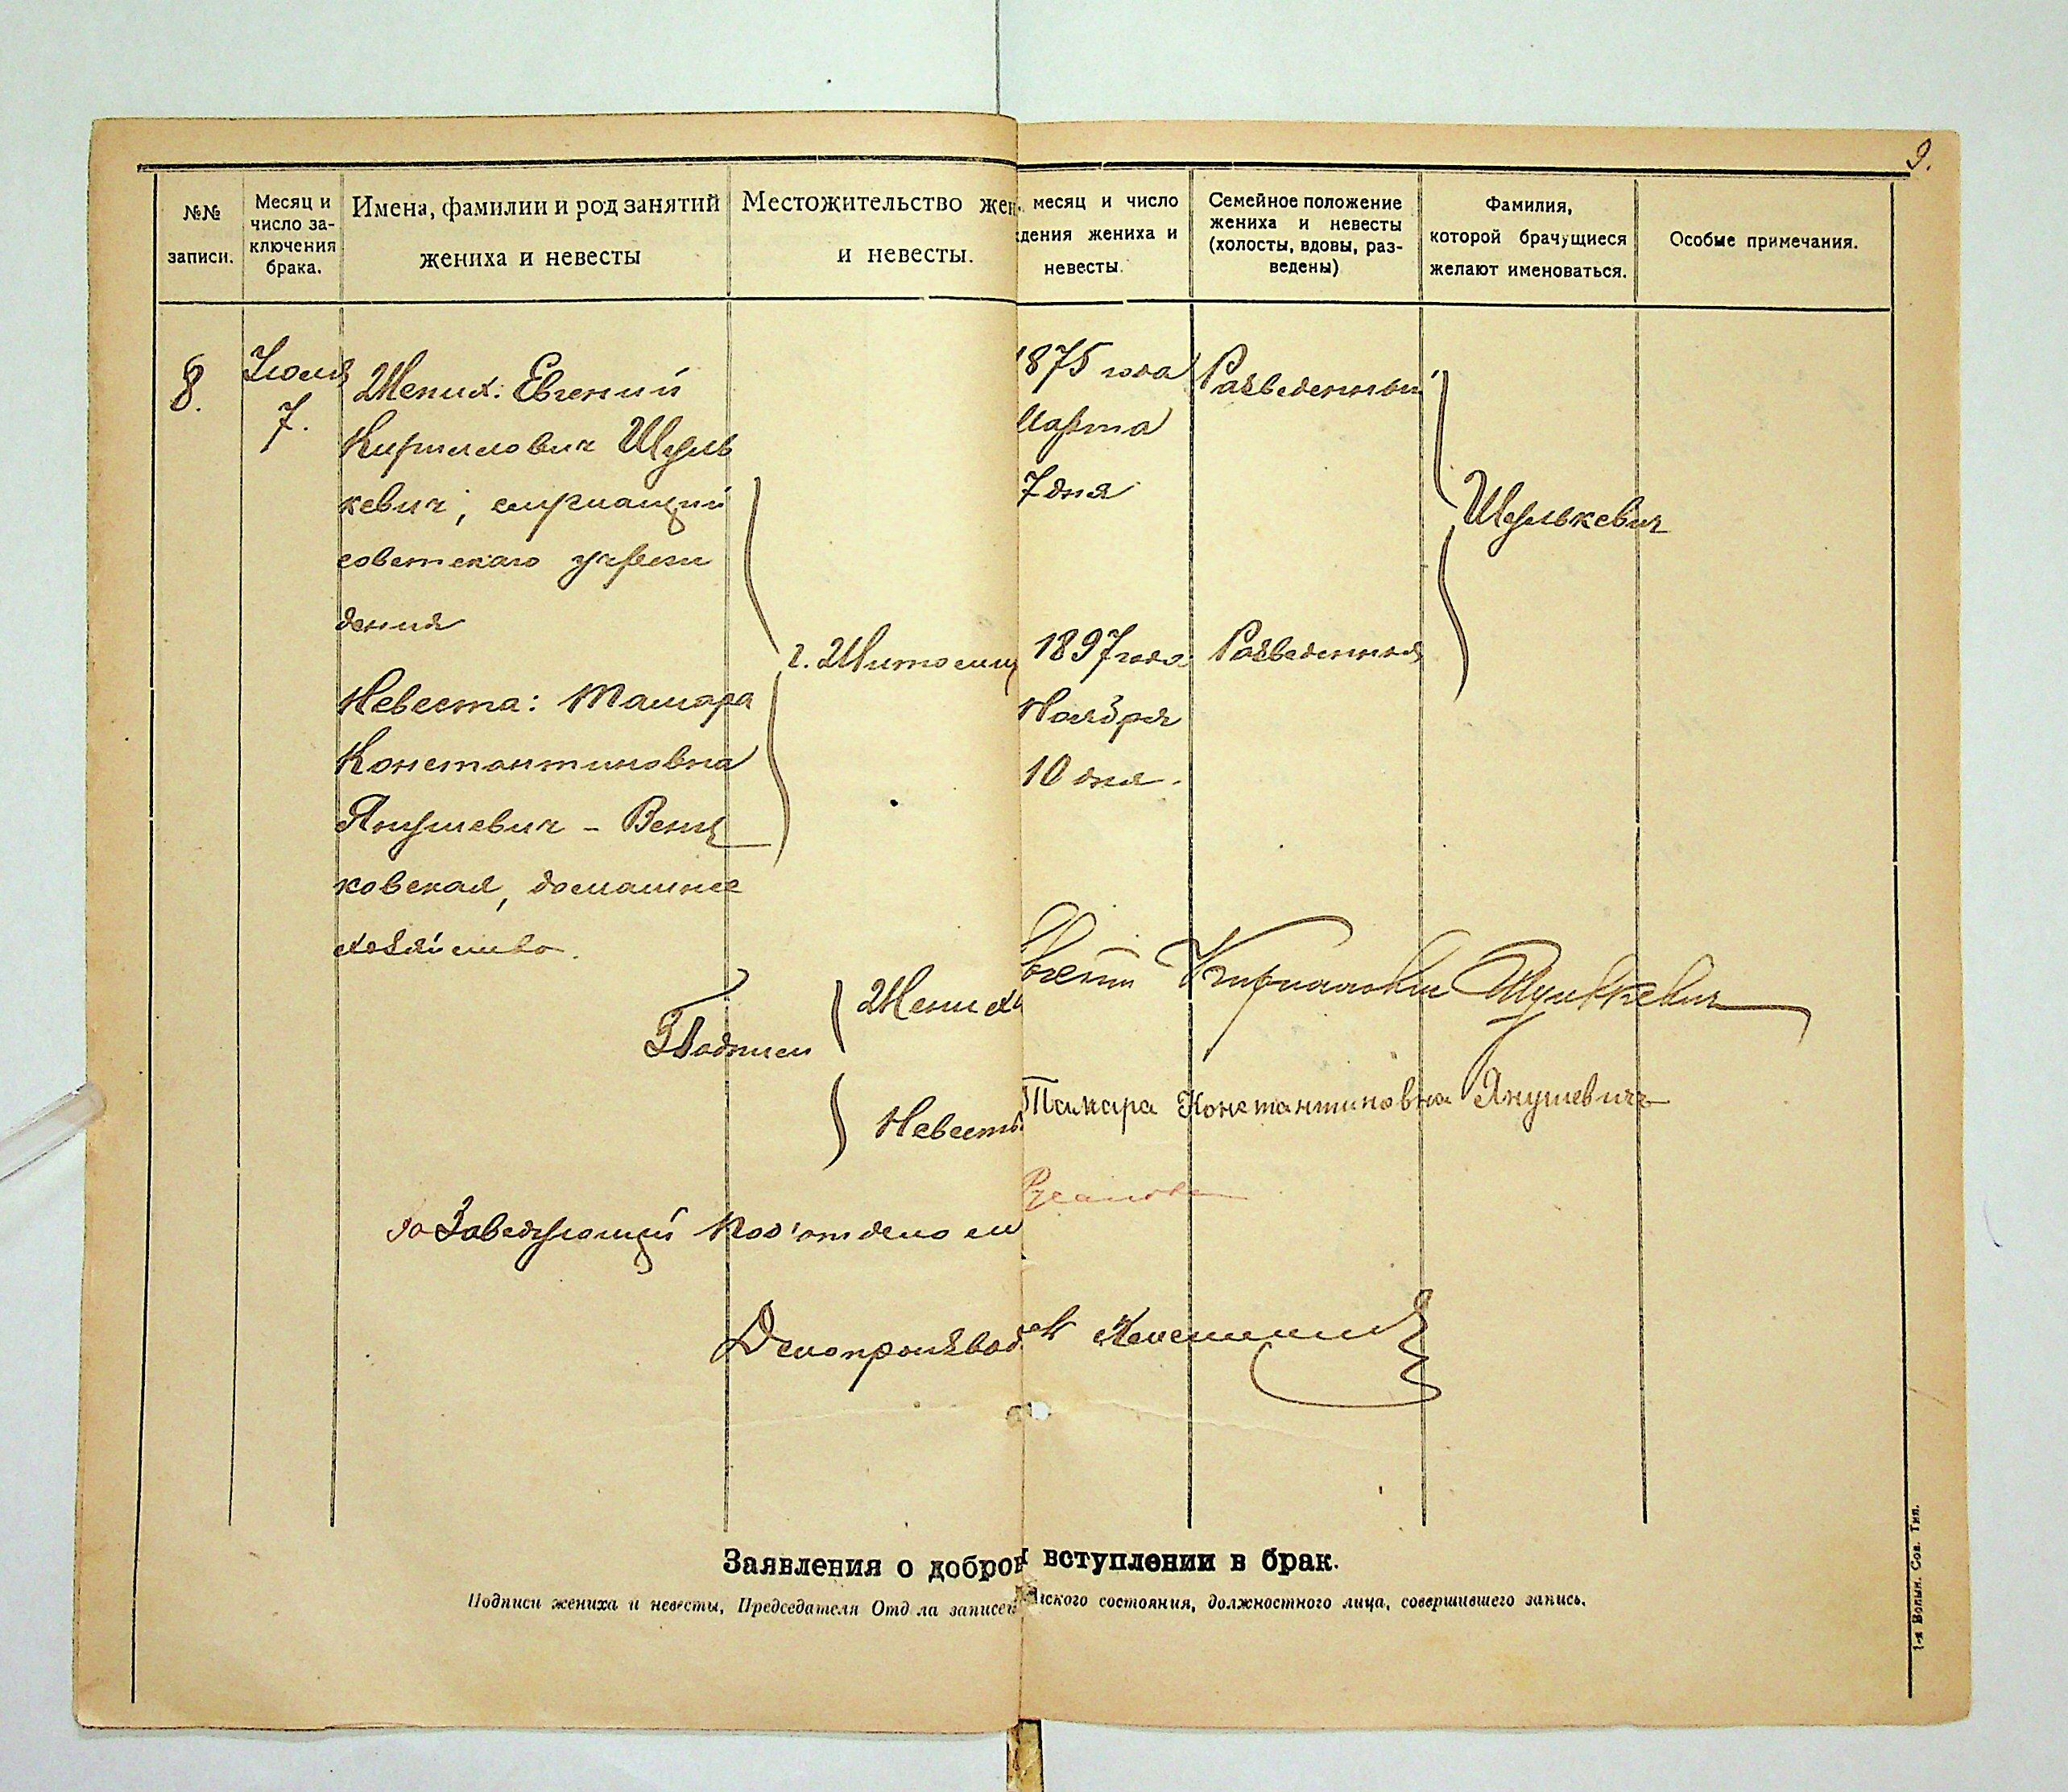 9.
№№ записи.
Месяц и число заключения брака.
Имена, фамилии и род занятий жениха и невесты
Местожительство жен
и невесты.
месяц и число
дения жениха и
невесты.
Семейное положение жениха и невесты (холосты, вдовы, разведены)
Фамилия, которой брачущиеся желают именоваться.
Особые примечания.
8.
Июля
7.
Жених: Евгений
Кириллович Шуль
кевич, служащий
советскаго учреж
дения
Невеста: Тамара
Константиновна
Янушевич - Венц
ковская, домашнее
хозяйство.
г. Житомир
1875 года
Марта
7 дня
1897 года
Ноября
10 дня.
Разведенный
Разведенная
Шулькевич
Подписи
Жениха
Евгений Кириллович Шулькевич
Невесты
Тамара Константиновна Янушевич
За Заведующий Под'отделом
Делопроизвод
Заявления о добров вступлении в брак.
Подписи жениха и невесты, Председателя Отд ла записей нского состояния, должностного лица, совершившего запись.
1-я Волын. Сов. Тип.